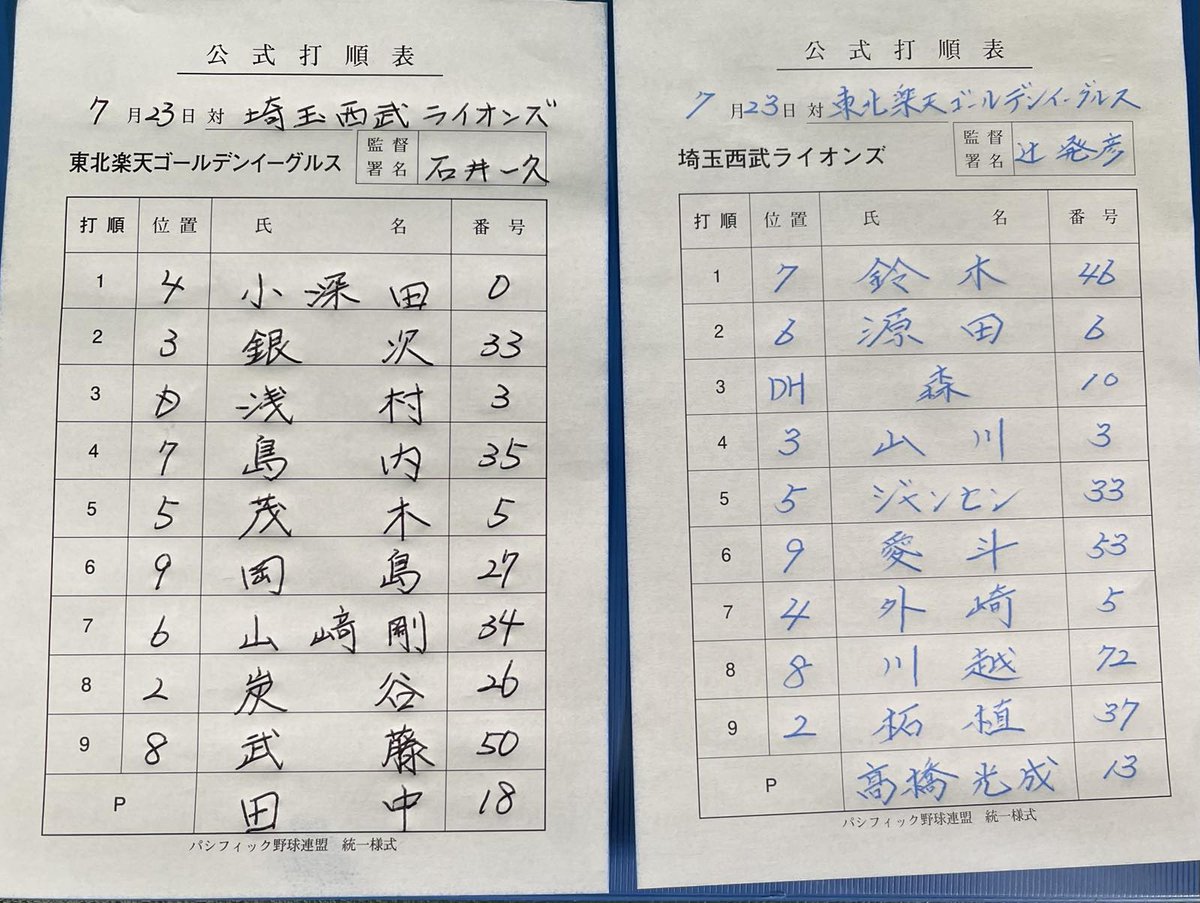 公式打順表
7月23日 対 埼玉西武ライオンズ
東北楽天ゴールデンイーグルス 監督署名 石井一久
打順 位置 氏名 番号
1 4 小深田 0
2 3 銀次 33
3 D 浅村 3
4 7 島内 35
5 5 茂木 5
6 9 岡島 27
7 6 山﨑剛 34
8 2 炭谷 26
9 8 武藤 50
P 田中 18
パシフィック野球連盟 統一様式
公式打順表
7月23日 対 東北楽天ゴールデンイーグルス
埼玉西武ライオンズ 監督署名 辻発彦
打順 位置 氏名 番号
1 7 鈴木 46
2 6 源田 6
3 DH 森 10
4 3 山川 3
5 5 ジャンセン 33
6 9 愛斗 53
7 4 外崎 5
8 8 川越 72
9 2 柘植 37
P 髙橋光成 13
パシフィック野球連盟 統一様式